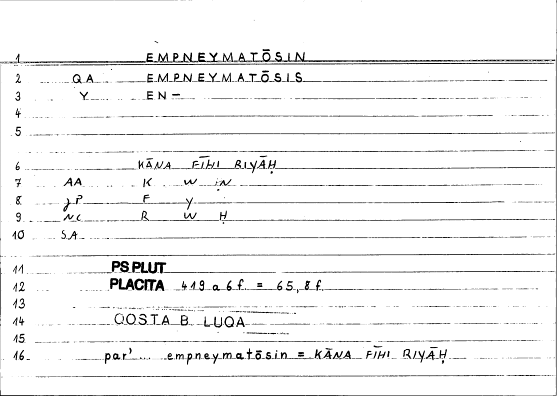 1 EMPNEYMATŌSIN
2 QA EMPNEYMATŌSIS
3 Y EN-
4
5
6 KĀNA FĪHI RIYĀḤ
7 AA K W IN
8 JP F Y
9 NC R W Ḥ
10 SA
11 PS PLUT
12 PLACITA 419 a 6 f. = 65, 8 f.
13
14 QOSTA B. LUQA
15
16 par' ... empneymatōsin = KĀNA FĪHI RIYĀḤ